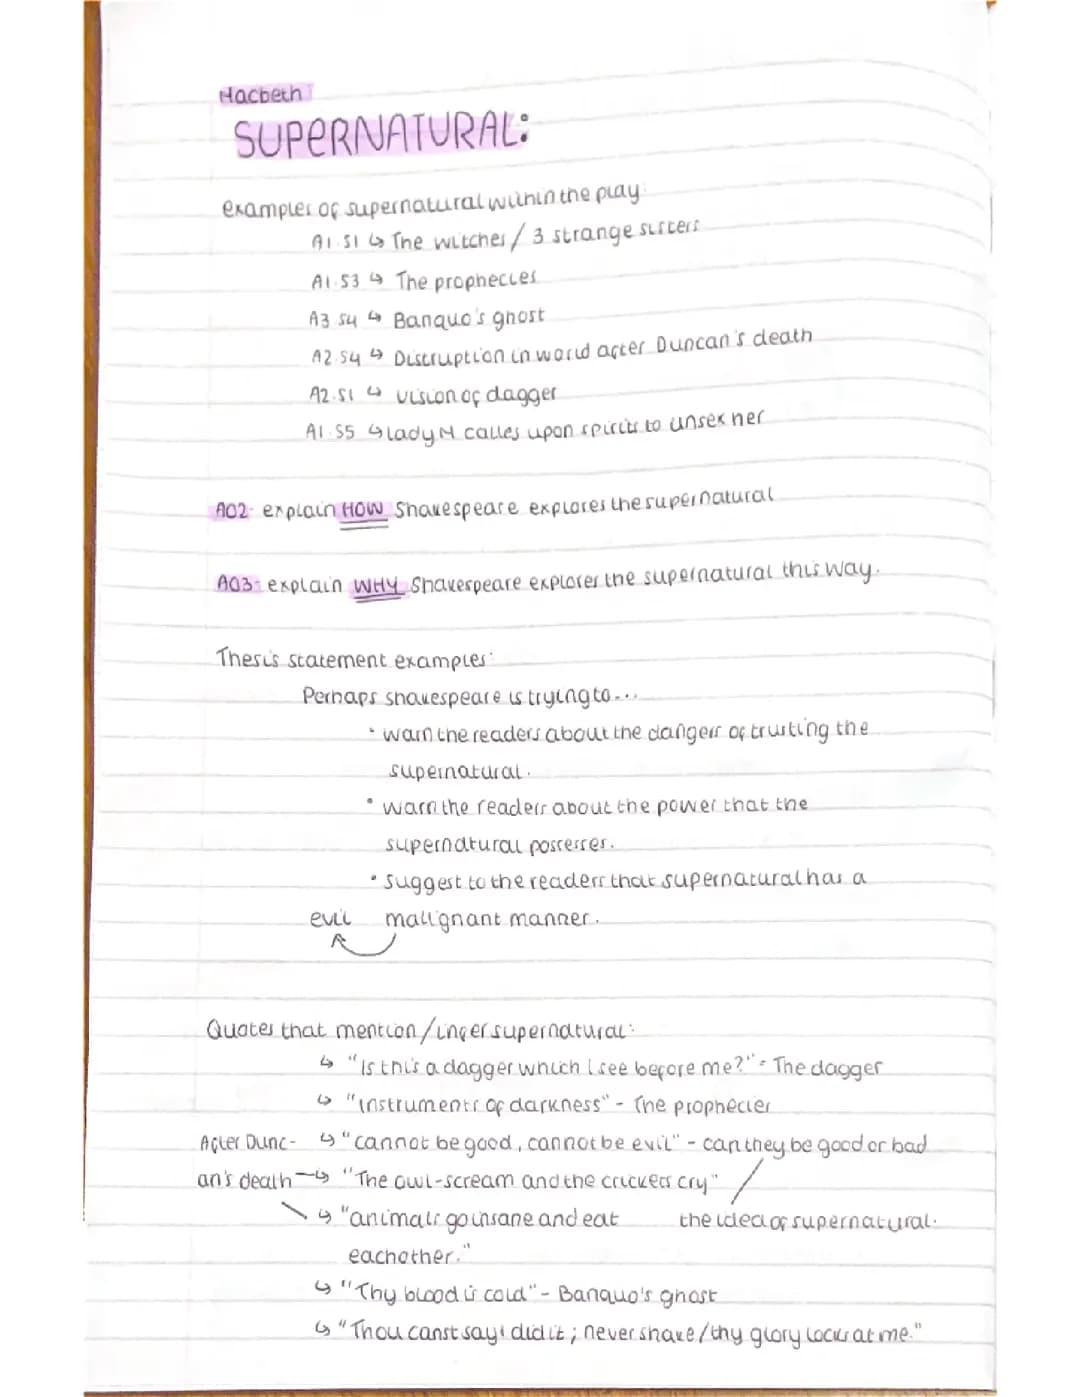 Macbeth
SUPERNATURAL:
examples of supernatural within the play:
A1.S1 ↳ The witches / 3 strange sisters
A1.S3 ↳ The prophecies
A3 S4 ↳ Banquo's ghost
A2.S4 ↳ Distruption in world after Duncan's death
A2.S1 ↳ vision of dagger
A1.S5 ↳ lady M calles upon spirits to unsex her
A02- explain HOW Shakespeare explores the supernatural
A03- explain WHY Shakespeare explores the supernatural this way.
Thesis statement examples:
Perhaps shakespeare is trying to...
• warn the readers about the dangers of trusting the
supernatural.
• warn the readers about the power that the
supernatural possesses.
• suggest to the readers that supernatural has a
evil malignant manner.
Quotes that mention/infer supernatural:
↳ "Is this a dagger which I see before me?" - The dagger
↳ "instruments of darkness" - The prophecies
After Dunc- ↳ "cannot be good, cannot be evil" - can they be good or bad
an's death ↳ "The owl-scream and the crickets cry"
↳ "animals go insane and eat the idea of supernatural.
eachother."
↳ "Thy blood is cold" - Banquo's ghost
↳ "Thou canst say I did it; never shake / thy glory locks at me."